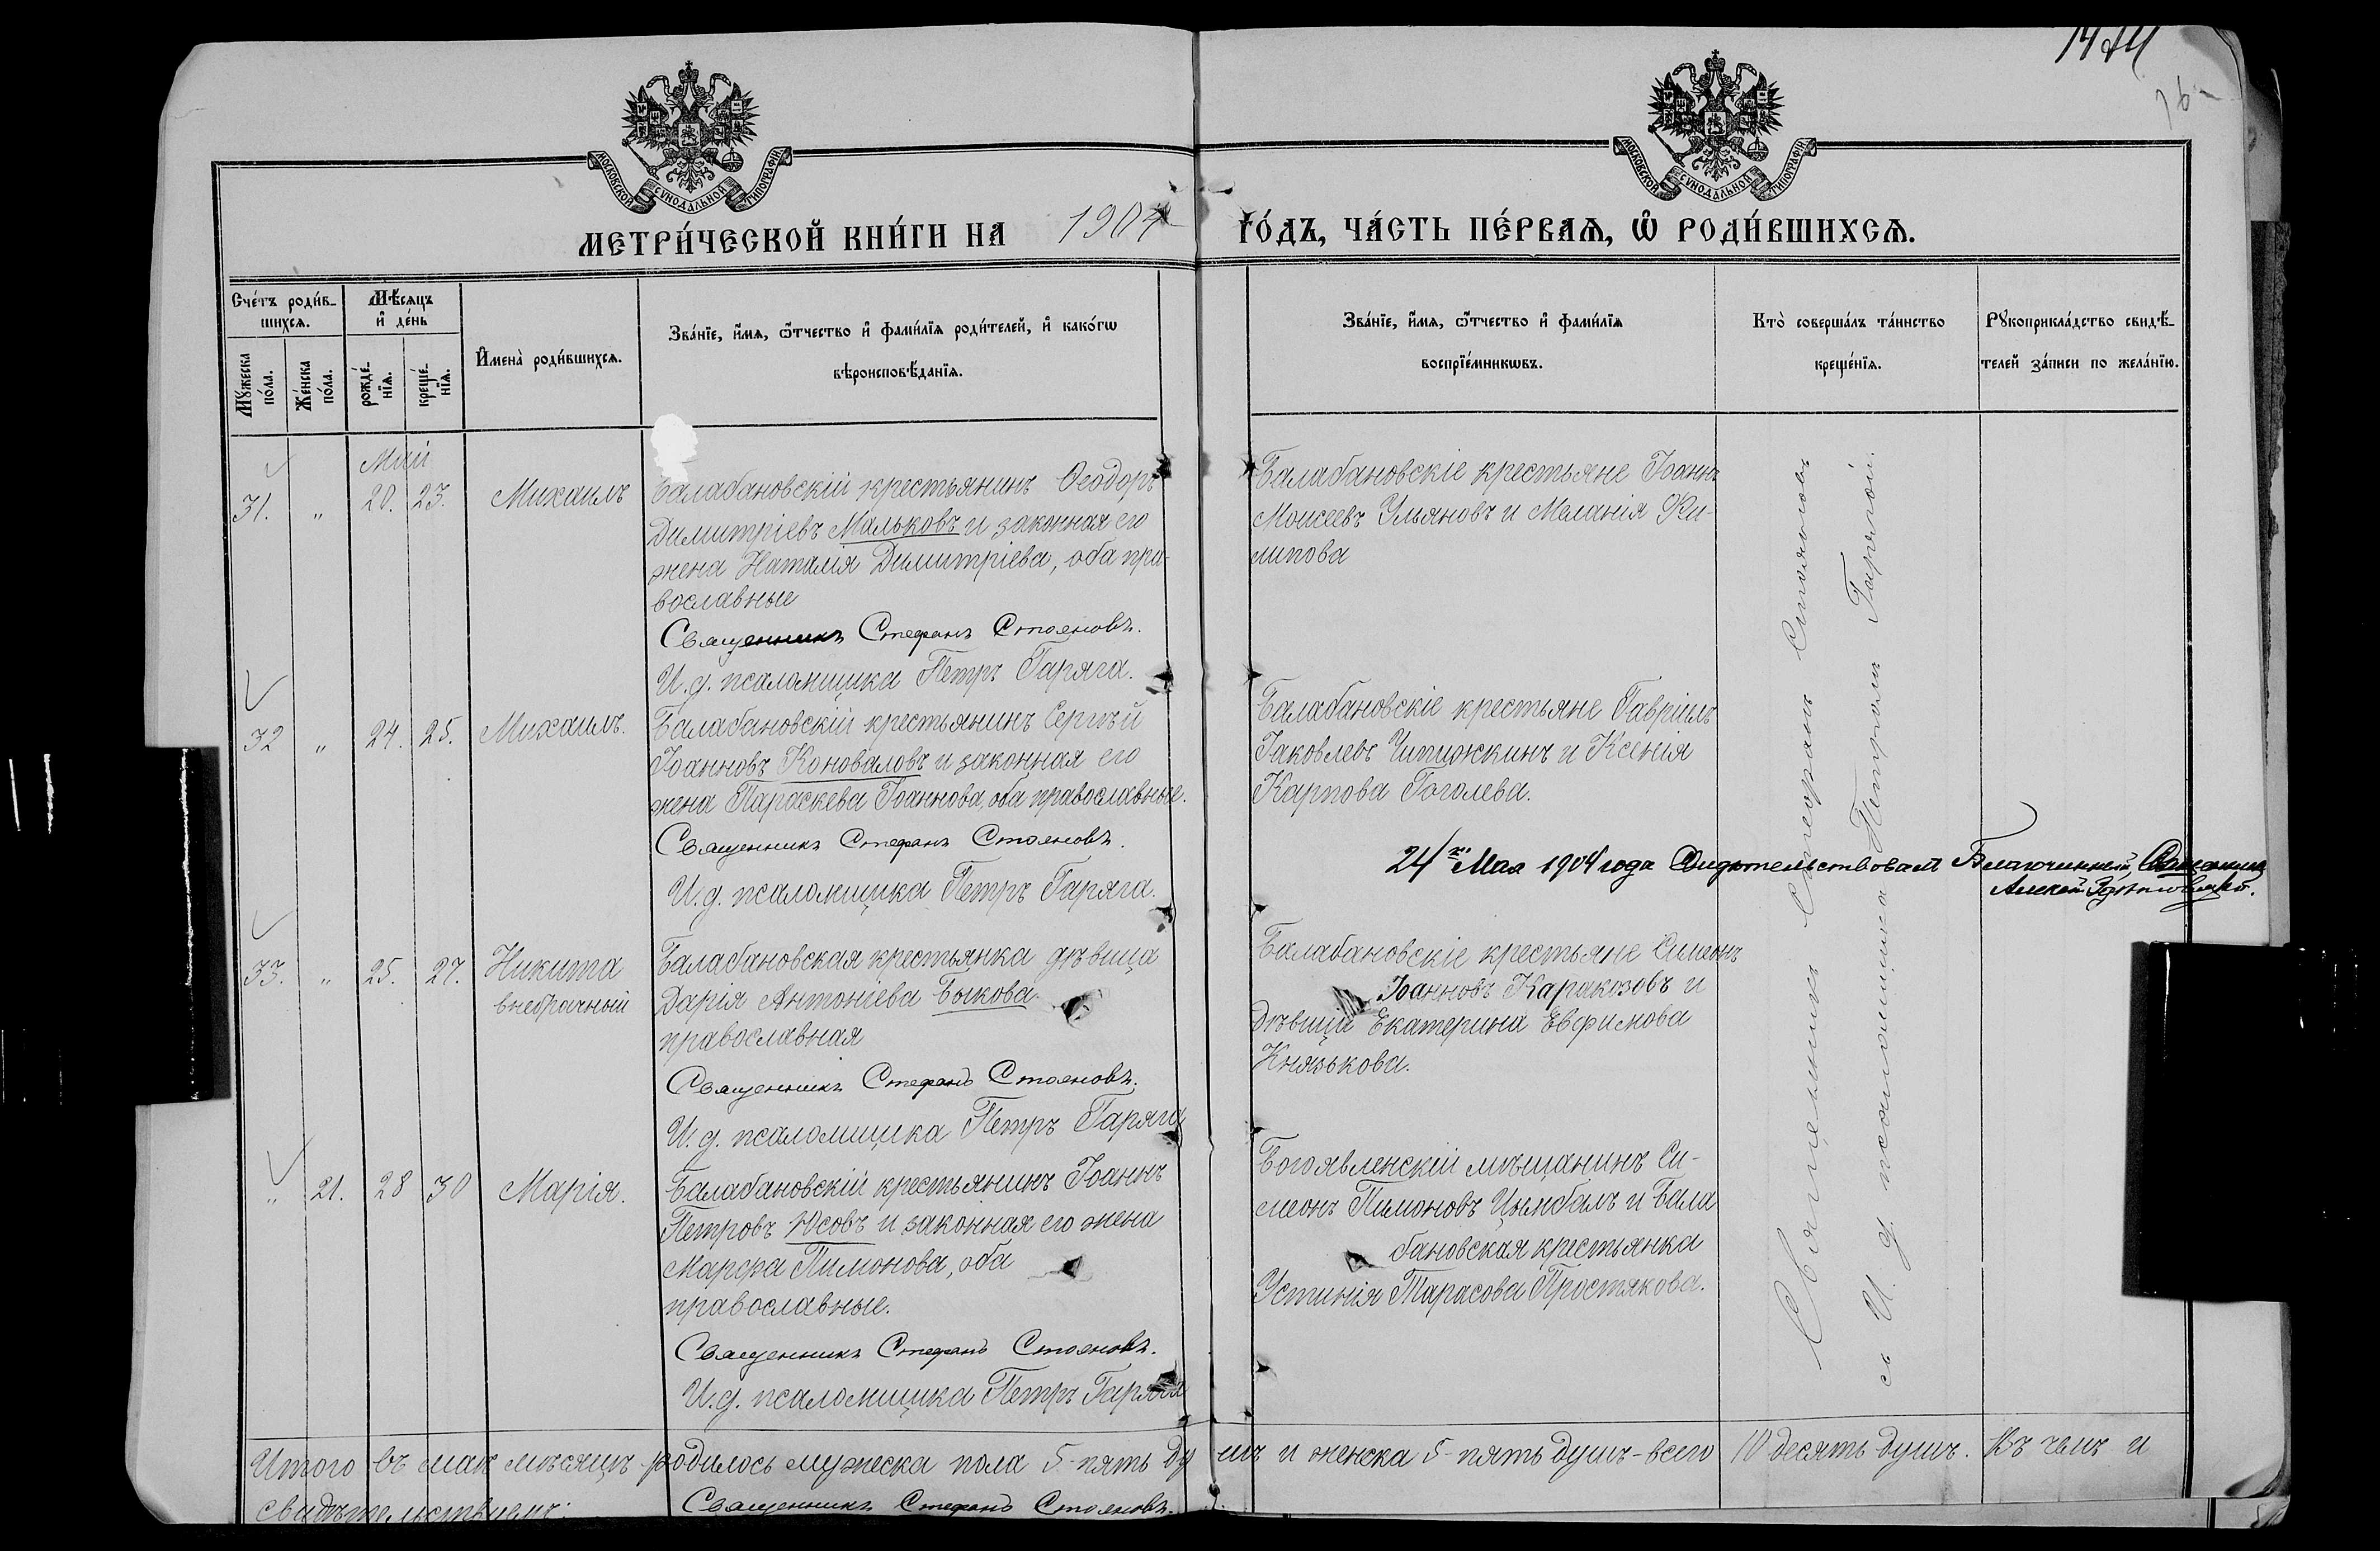 МОСКОВСКОЙ СУНОДАЛЬНОЙ ТИПОГРАФІИ
МОСКОВСКОЙ СУНОДАЛЬНОЙ ТИПОГРАФІИ
МЕТРИ́ЧЕСКОЙ КНИ́ГИ НА 1904 ГО́ДЪ, ЧА́СТЬ ПЕ́РВАѦ, Ѡ РОДИ́ВШИХСѦ.
Сче́тъ роди́в-
шихсѧ.
Мꙋжеска по́ла.
Же́нска по́ла.
Мѣ́сѧцъ и҆ де́нь
рожде́-нїѧ.
креще́-нїѧ.
И҆мена̀ роди́вшихсѧ.
Зва́нїе, и҆́мѧ, ѻ҆́тчество и҆ фами́лїѧ роди́телей, и҆ како́гѡ
вѣроисповѣ́данїѧ.
Зва́нїе, и҆́мѧ, ѻ҆́тчество и҆ фами́лїѧ
воспрїе́мникѡвъ.
Кто̀ соверша́лъ та́инство
креще́нїѧ.
Рꙋкоприкла́дство свидѣ́-
телей за́писи по жела́нїю.
Май
31. " 20. 23. Михаилъ
Балабановскій крестьянинъ Ѳеодоръ
Димитріевъ Мальковъ и законная его
жена Наталія Димитріева, оба пра-
вославные
Священникъ Стефанъ Стояновъ.
И. д. псаломщика Петръ Гаряга.
Балабановскіе крестьяне Іоаннъ
Моисеевъ Ульяновъ и Меланія Фи-
липова
32 " 24. 25. Михаилъ.
Балабановскій крестьянинъ Сергѣй
Іоанновъ Коноваловъ и законная его
жена Параскева Іоаннова, оба православные.
Священникъ Стефанъ Стояновъ.
И. д. псаломщика Петръ Гаряга.
Балабановскіе крестьяне Гавріилъ
Іаковлевъ Чипижкинъ и Ксенія
Карпова Гоголева.
24го Мая 1904 года Свидѣтельствовалъ Благочинный, Священникъ
Алексѣй
33. " 25. 27. Никита
внебрачный
Балабановская крестьянка дѣвица
Дарія Антоніева Быкова
православная
Священникъ Стефанъ Стояновъ.
И. д. псаломщика Петръ Гаряга
Балабановскіе крестьяне Симеонъ
Іоанновъ Каракозовъ и
дѣвица Екатерина Евфимова
Князькова.
" 21. 28 30 Марія.
Балабановскій крестьянинъ Іоаннъ
Петровъ Юсовъ и законная его жена
Марфа Пимонова, оба
православные.
Священникъ Стефанъ Стояновъ.
И. д. псаломщика Петръ Гаряга
Богоявленскій мѣщанинъ Си-
меонъ Пимоновъ Цымбалъ и Бала
бановская крестьянка
Устинія Тарасова Простякова.
Священникъ Стефанъ Стояновъ
съ И. д. псаломщика Петромъ Гарягой.
Итого въ маѣ мѣсяцѣ родилось мужеска пола 5-пять душъ и женска 5-пять душъ-всего 10 десять душъ. Въ чемъ и
свидѣтельствуемъ:
Священникъ Стефанъ Стояновъ.